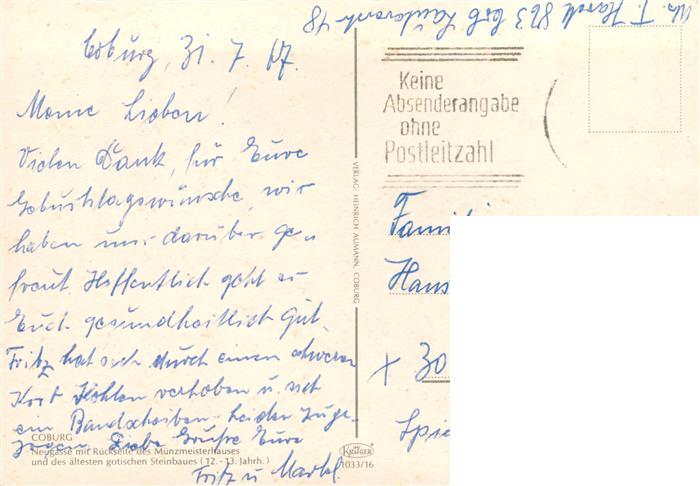 Coburg, 31. 7. 67.
Meine Lieben!
Vielen Dank, für Eure
Geburtstagswünsche, wir
haben uns darüber ge-
freut. Hoffentlich geht es
Euch gesundheitlich gut.
Fritz hat sich durch einen schweren
Korb Kohlen verhoben u. sich
ein Bandscheiben-Leiden zuge-
zogen. Liebe Grüße Eure
Fritz u.
COBURG
Neugasse mit Rückseite des Münzmeisterhauses
und des ältesten gotischen Steinbaues (12.-13. Jahrh.)
VERLAG: HEINRICH AUMANN, COBURG
KRÜGER
1033/16
863 Cbg 18
Keine
Absenderangabe
ohne
Postleitzahl
Famili
Hans
30
Spi